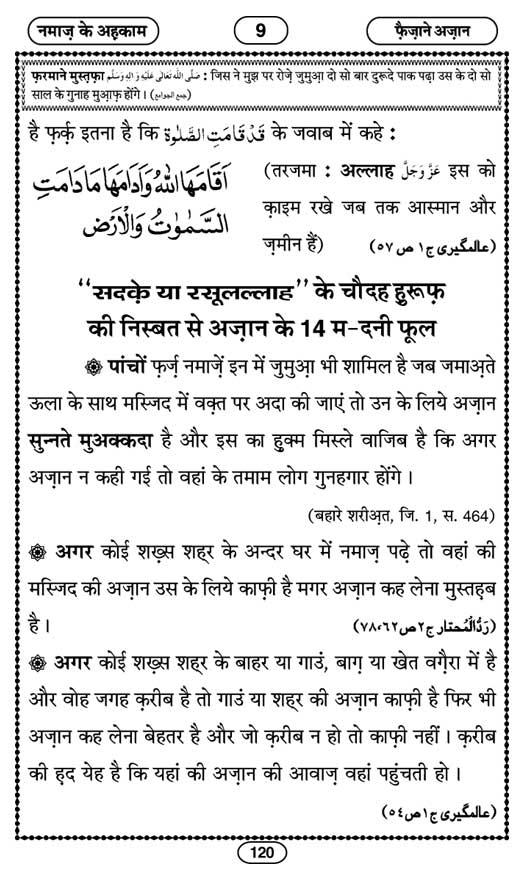 नमाज़ के अहकाम
9
फ़ैज़ाने अज़ान
फ़रमाने मुस्तफ़ा صَلَّى اللّٰهُ تَعَالٰى عَلَيْهِ وَاٰلِهٖ وَسَلَّم : जिस ने मुझ पर रोज़े जुमुआ़ दो सो बार दुरूदे पाक पढ़ा उस के दो सो
साल के गुनाह मुआ़फ़ होंगे । (جمع الجوامع)
है फ़र्क़ इतना है कि قَدْ قَامَتِ الصَّلٰوةُ के जवाब में कहे :
اَقَامَهَا اللّٰهُ وَاَدَامَهَا مَا دَامَتِ
السَّمٰوٰتُ وَالْاَرْضُ
(तरजमा : अल्लाह عَزَّوَجَلَّ इस को
क़ाइम रखे जब तक आस्मान और
ज़मीन हैं) (عالمگیری ج۱ ص۵۷)
“सदक़े या रसूलल्लाह” के चौदह हुरूफ़
की निस्बत से अज़ान के 14 म-दनी फूल
पांचों फ़र्ज़ नमाज़ें इन में जुमुआ़ भी शामिल है जब जमाअ़ते
ऊला के साथ मस्जिद में वक़्त पर अदा की जाएं तो उन के लिये अज़ान
सुन्नते मुअक्कदा है और इस का हुक्म मिस्ले वाजिब है कि अगर
अज़ान न कही गई तो वहां के तमाम लोग गुनहगार होंगे ।
(बहारे शरीअ़त, जि. 1, स. 464)
अगर कोई शख़्स शह्र के अन्दर घर में नमाज़ पढ़े तो वहां की
मस्जिद की अज़ान उस के लिये काफ़ी है मगर अज़ान कह लेना मुस्तह़ब
है । (رَدُّالْمُحتار ج۲ ص۶۲،۷۸)
अगर कोई शख़्स शह्र के बाहर या गाउं, बाग़ या खेत वग़ैरा में है
और वोह जगह क़रीब है तो गाउं या शह्र की अज़ान काफ़ी है फिर भी
अज़ान कह लेना बेहतर है और जो क़रीब न हो तो काफ़ी नहीं । क़रीब
की ह़द येह है कि यहां की अज़ान की आवाज़ वहां पहुंचती हो ।
(عالمگیری ج۱ ص۵۴)
120